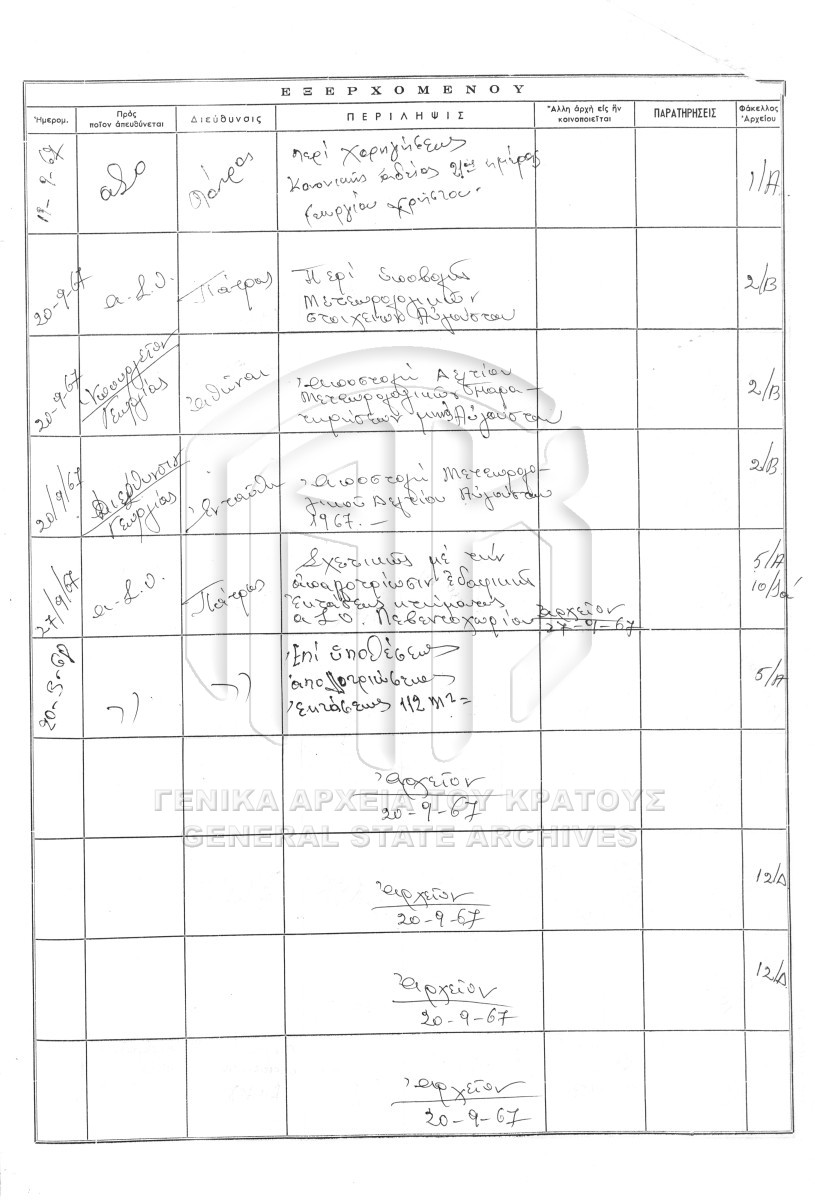 ΕΞΕΡΧΟΜΕΝΟΥ
Ἡμερομ.
Πρὸς ποῖον ἀπευθύνεται
Διεύθυνσις
ΠΕΡΙΛΗΨΙΣ
Ἄλλη ἀρχὴ εἰς ἣν κοινοποιεῖται
ΠΑΡΑΤΗΡΗΣΕΙΣ
Φάκελλος Ἀρχείου
19-9-67
ΑΣΟ
Πάτρας
Περί Χορηγήσεως
Κανονικῆς ἀδείας ἡμέρας
Γεωργίου Χρήστου
1/Α
20-9-67
Α.Σ.Ο.
Πάτρας
Περί ὑποβολῆς
Μετεωρολογικῶν
στοιχείων Αὐγούστου
2/Β
20-9-67
Ὑπουργεῖον
Γεωργίας
Ἀθῆναι
Ἀποστολή Δελτίου
Μετεωρολογικῶν Παρα-
τηρήσεων μηνός Αὐγούστου
2/Β
20/9/67
Διεύθυνσιν
Γεωργίας
Ἐνταῦθα
Ἀποστολή Μετεωρολο-
γικοῦ Δελτίου Αὐγούστου
1967.-
2/Β
27/9/67
Α.Σ.Ο.
Πάτρας
Σχετικῶς με τήν
ἀπαλοτρίωσιν ἐδαφικῆς
Ἐκτάσεως κτήματος
Α.Σ.Ο.
Ἀρχεῖον
27-9-67
5/Α
20-9-67
〃
〃
Ἐπί ὑποθέσεως
ἀπαλοτριώσεως
Ἐκτάσεως 112 m²=
5/Α
Ἀρχεῖον
20-9-67
Ἀρχεῖον
20-9-67
12/Δ
Ἀρχεῖον
20-9-67
12/Δ
Ἀρχεῖον
20-9-67
ΓΕΝΙΚΑ ΑΡΧΕΙΑ ΤΟΥ ΚΡΑΤΟΥΣ
GENERAL STATE ARCHIVES